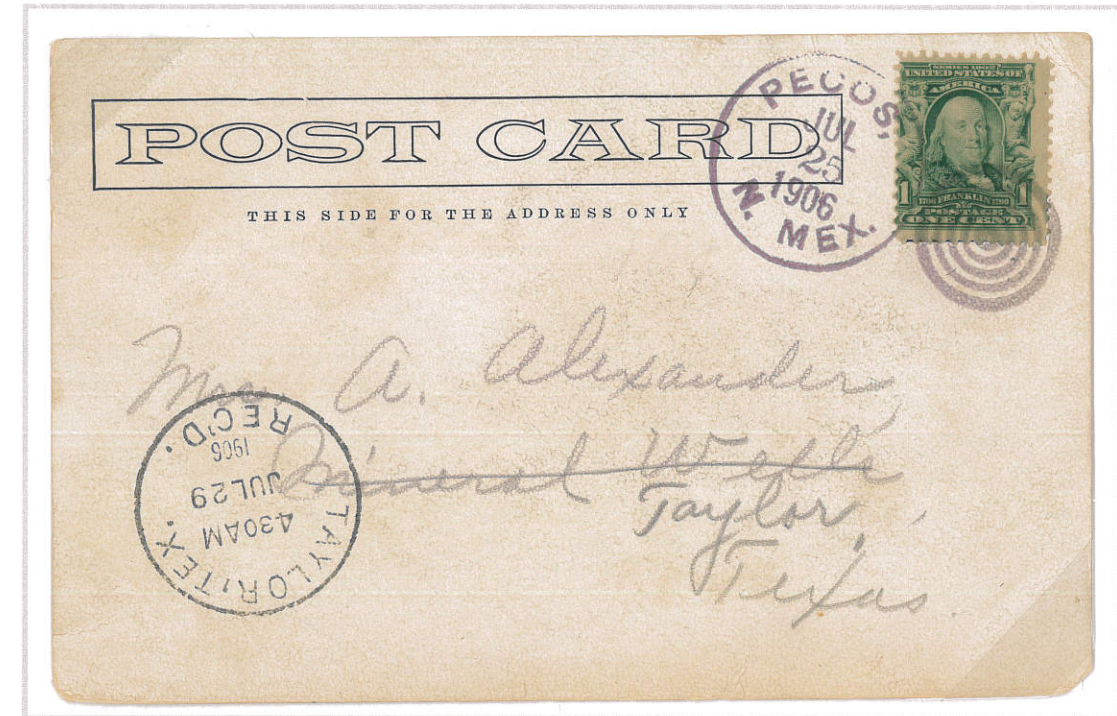 POST CARD
THIS SIDE FOR THE ADDRESS ONLY
PECOS,
JUL
25
1906
N. MEX.
SERIES 1902
UNITED STATES OF
AMERICA
1
1706 FRANKLIN 1790
POSTAGE
ONE CENT
Mrs A. Alexander,
Mineral Wells
Taylor,
Texas.
TAYLOR, TEX.
430AM
JUL 29
1906
REC'D.